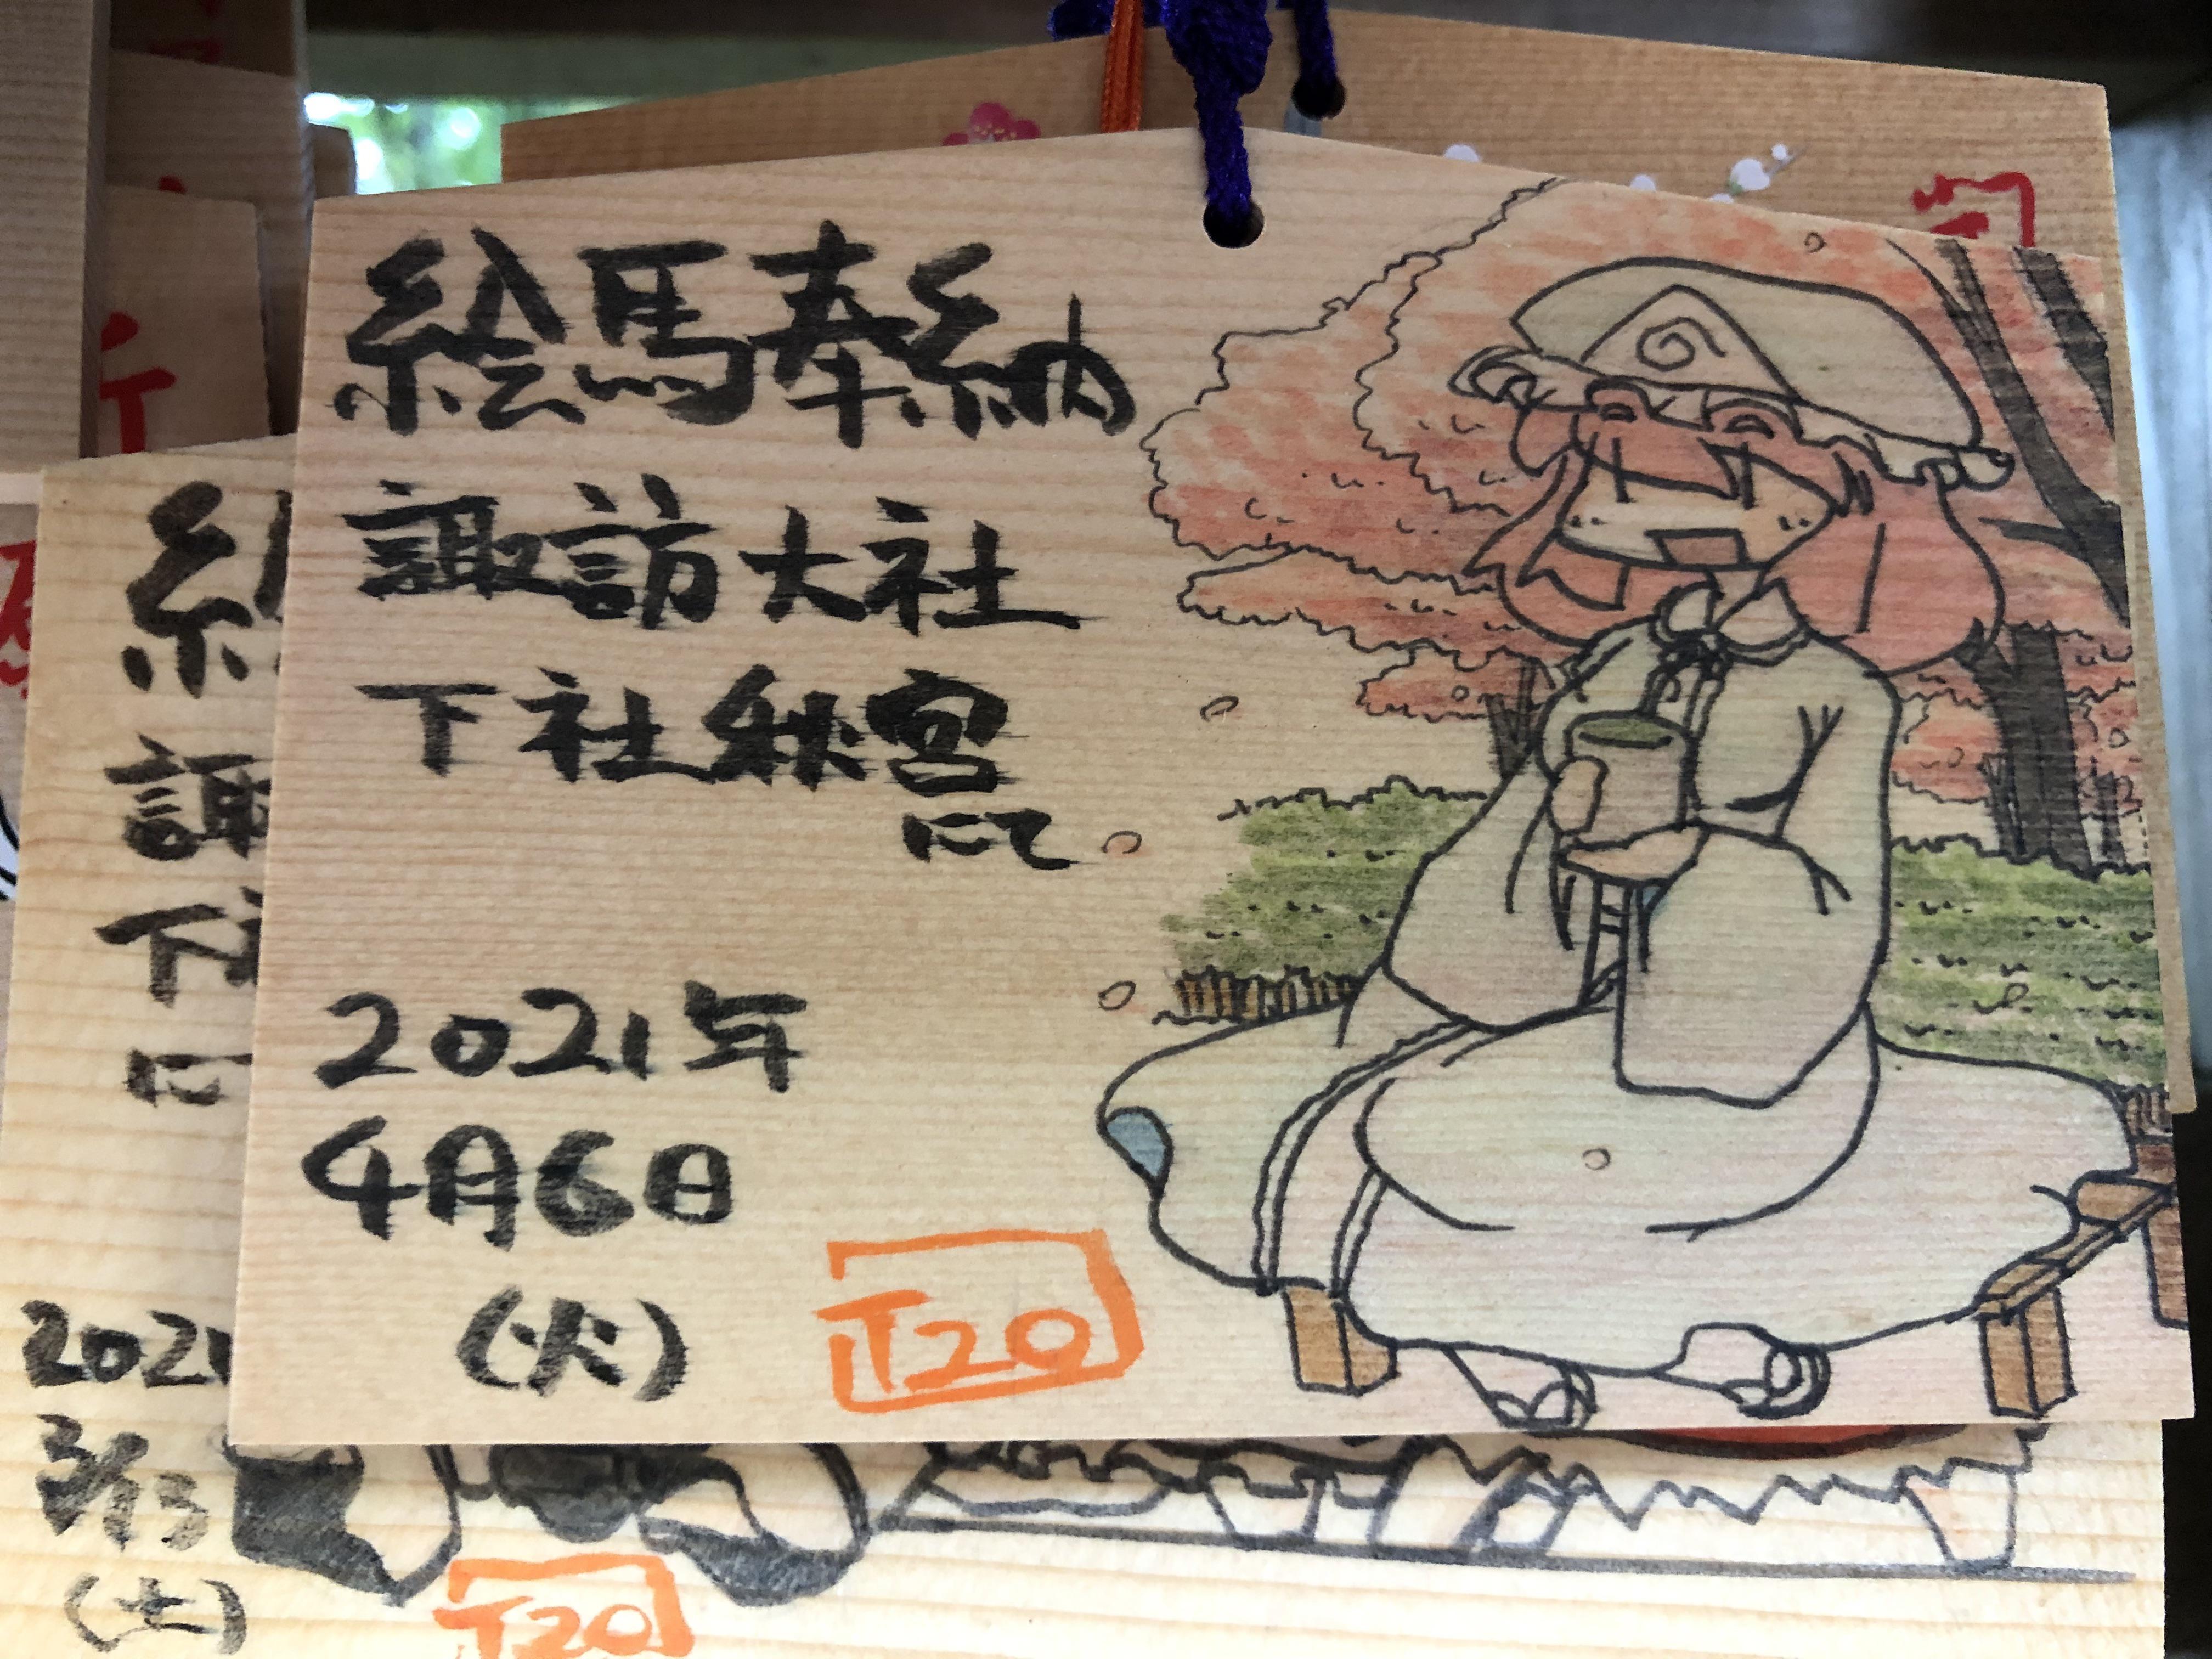 絵馬奉納
諏訪大社
下社秋宮
にて
2021年
4月6日
(火)
T20
下
に
2021
3/13
(土)
T20